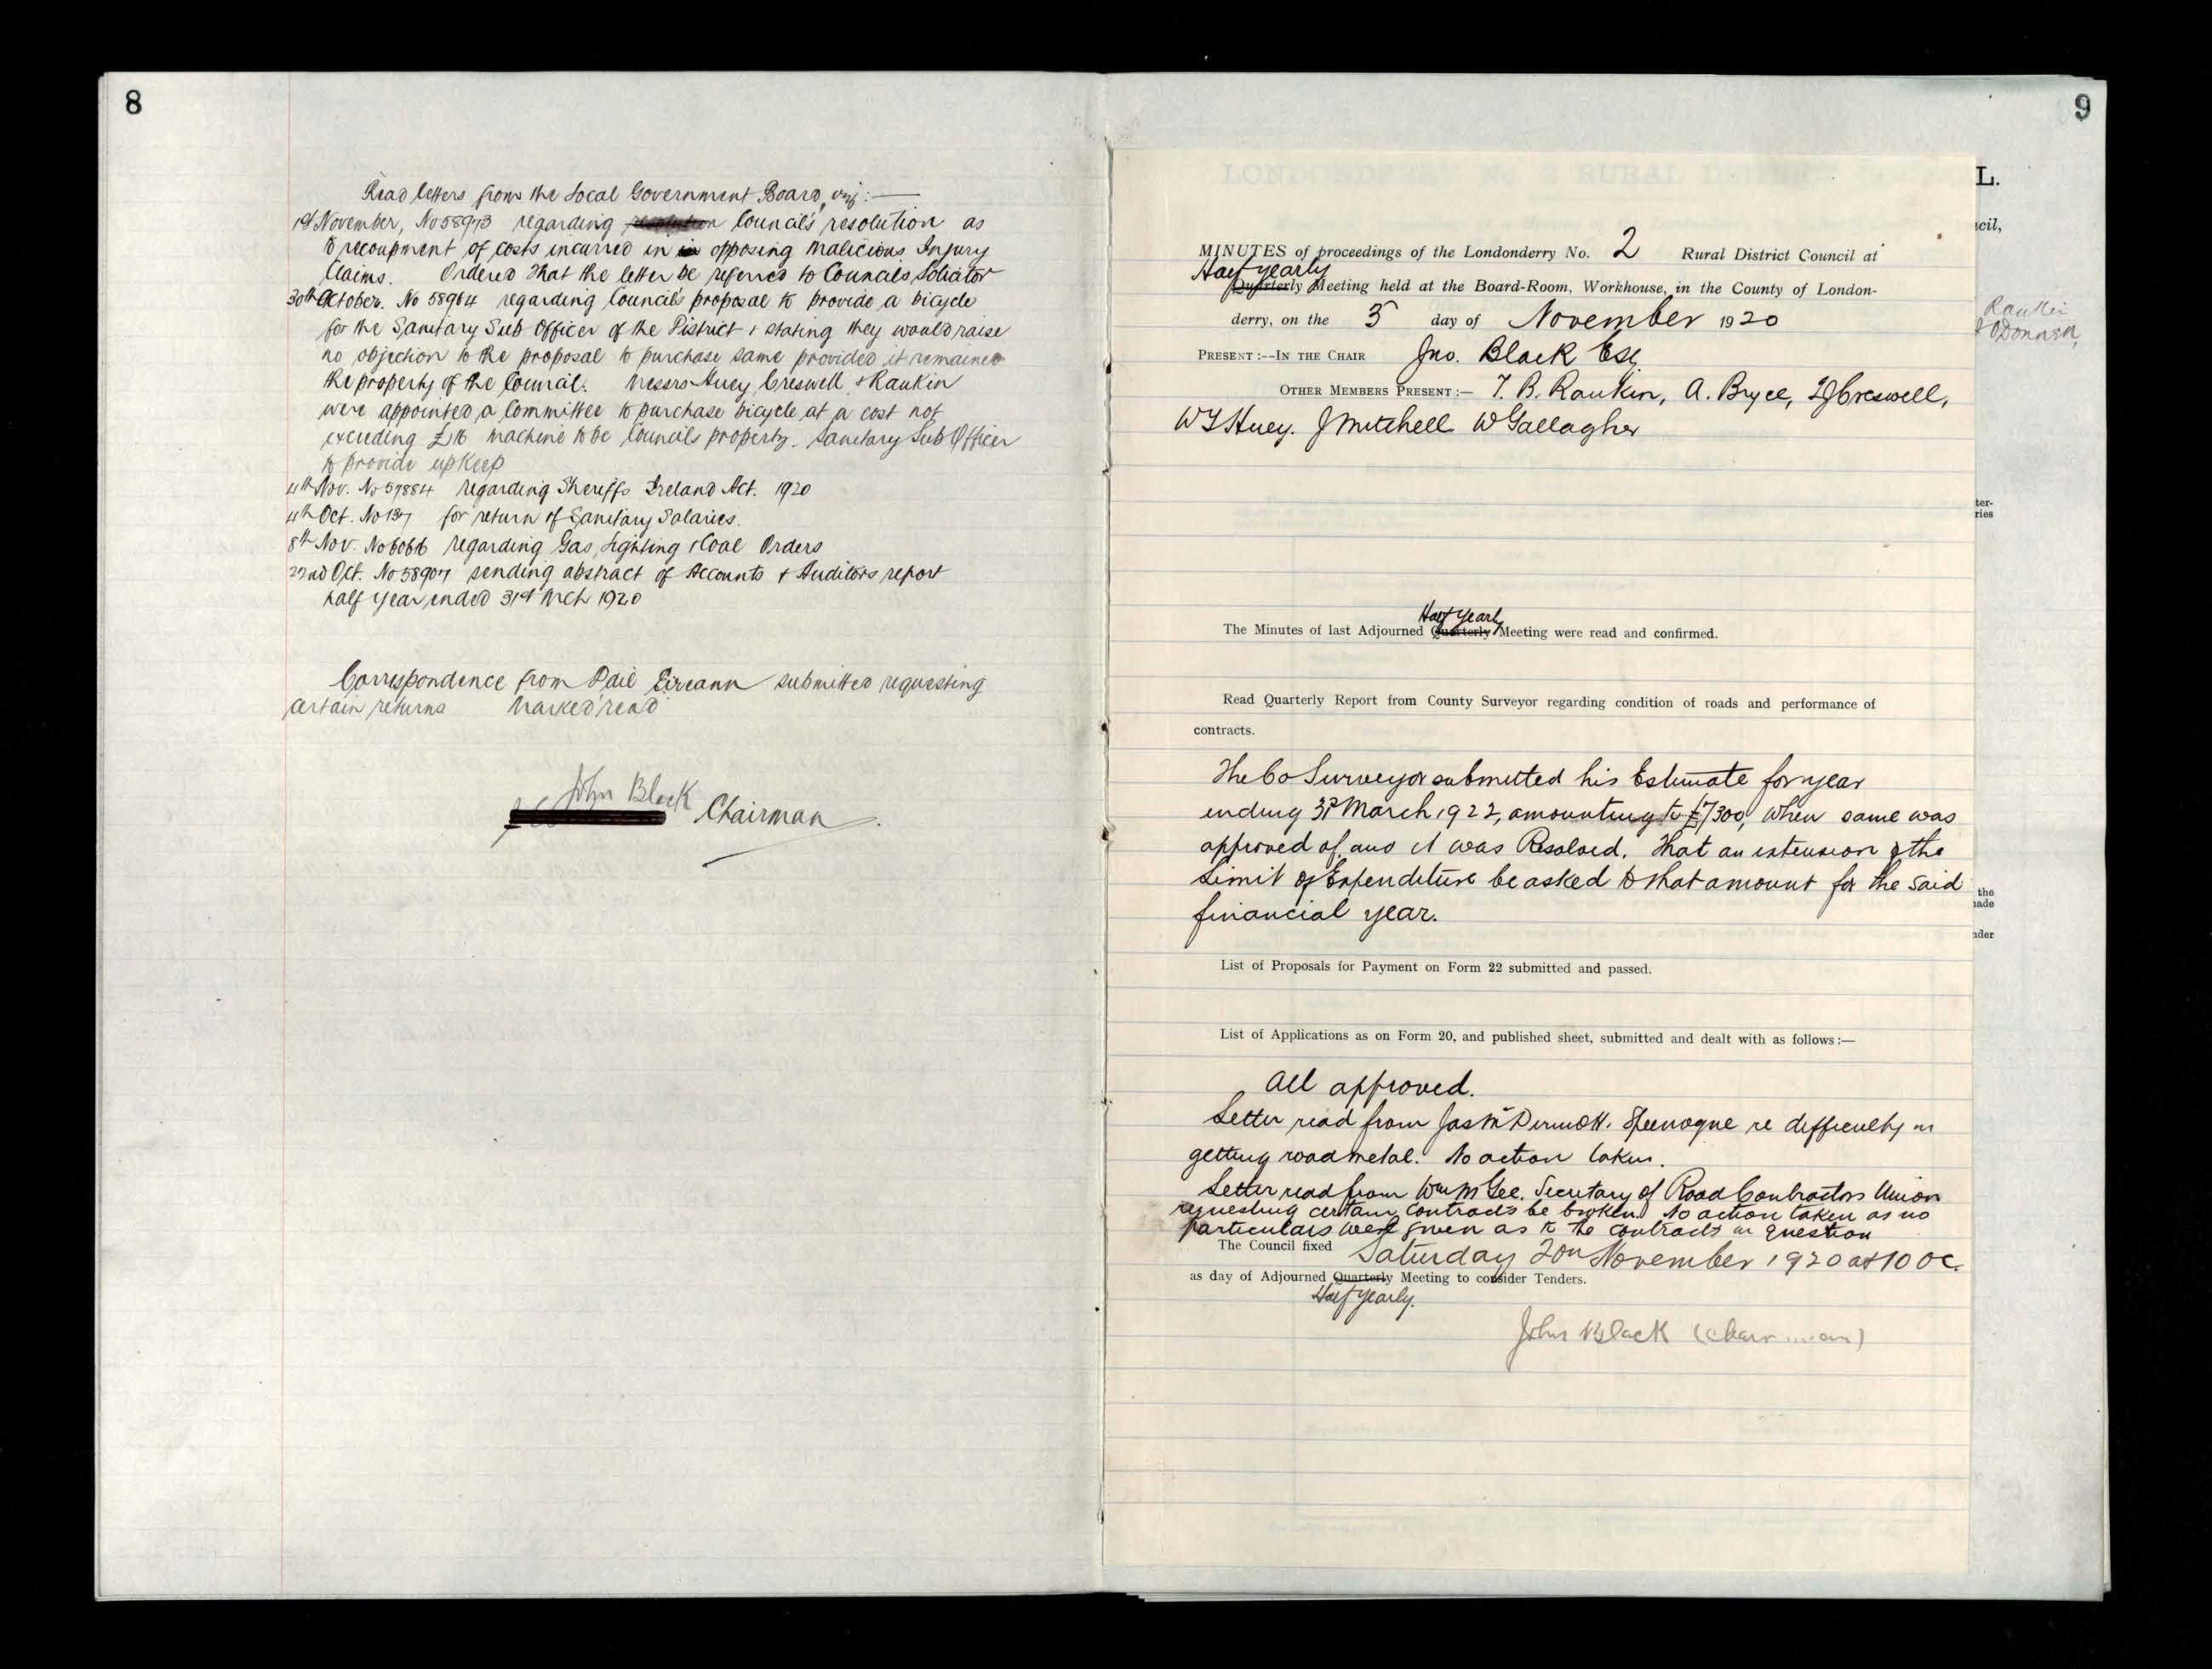 8
Read letters from the Local Government Board, viz:—
1st November, No 58973 regarding Council's resolution as
to recoupment of costs incurred in opposing Malicious Injury
Claims. Ordered that the letter be referred to Councils Solicitor
30th October. No 58964 regarding Council's proposal to provide a bicycle
for the Sanitary Sub Officer of the District & stating they would raise
no objection to the proposal to purchase same provided it remained
the property of the Council. Messrs Huey, Creswell, & Rankin
were appointed a Committee to purchase bicycle at a cost not
exceeding £16 machine to be Councils property. Sanitary Sub Officer
to provide upkeep
4th Nov. No 59884 regarding Sheriffs Ireland Act. 1920
4th Oct. No 137 for return of Sanitary Salaries.
8th Nov. No 6066 regarding Gas, Lighting & Coal Orders
22nd Oct. No 58907 sending abstract of Accounts & Auditors report
half year ended 31st Mch 1920
Correspondence from Dail Eireann submitted requesting
certain returns Marked read
John Black
Chairman
9
L.
LONDONDERRY No. 2 RURAL DISTRICT
cil,
MINUTES of proceedings of the Londonderry No. 2 Rural District Council at
Half yearly
Quarterly Meeting held at the Board-Room, Workhouse, in the County of London-
derry, on the 5 day of November 1920
Rankin
& O'Donnell
PRESENT :--IN THE CHAIR Jno. Black Esq
OTHER MEMBERS PRESENT :— T. B. Rankin, A. Bryce, Creswell,
W J Huey. J Mitchell W Gallagher
ter-
ries
Half Yearly
The Minutes of last Adjourned Quarterly Meeting were read and confirmed.
Read Quarterly Report from County Surveyor regarding condition of roads and performance of
contracts.
The Co Surveyor submitted his Estimate for year
ending 31st March 1922, amounting to £7300, when same was
approved of, and it was Resolved. That an extension of the
Limit of Expenditure be asked to that amount for the said
financial year.
the
ade
der
List of Proposals for Payment on Form 22 submitted and passed.
List of Applications as on Form 20, and published sheet, submitted and dealt with as follows :—
All approved.
Letter read from Jas McDermott. Speenogue re difficulty in
getting road metal. No action taken.
Letter read from Wm McGee. Secretary of Road Contractors Union
requesting certain contracts be broken. No action taken as no
particulars were given as to the contracts in question
The Council fixed Saturday 20th November 1920 at 10 oc.
as day of Adjourned Quarterly Meeting to consider Tenders.
Half yearly.
John Black (chairman)